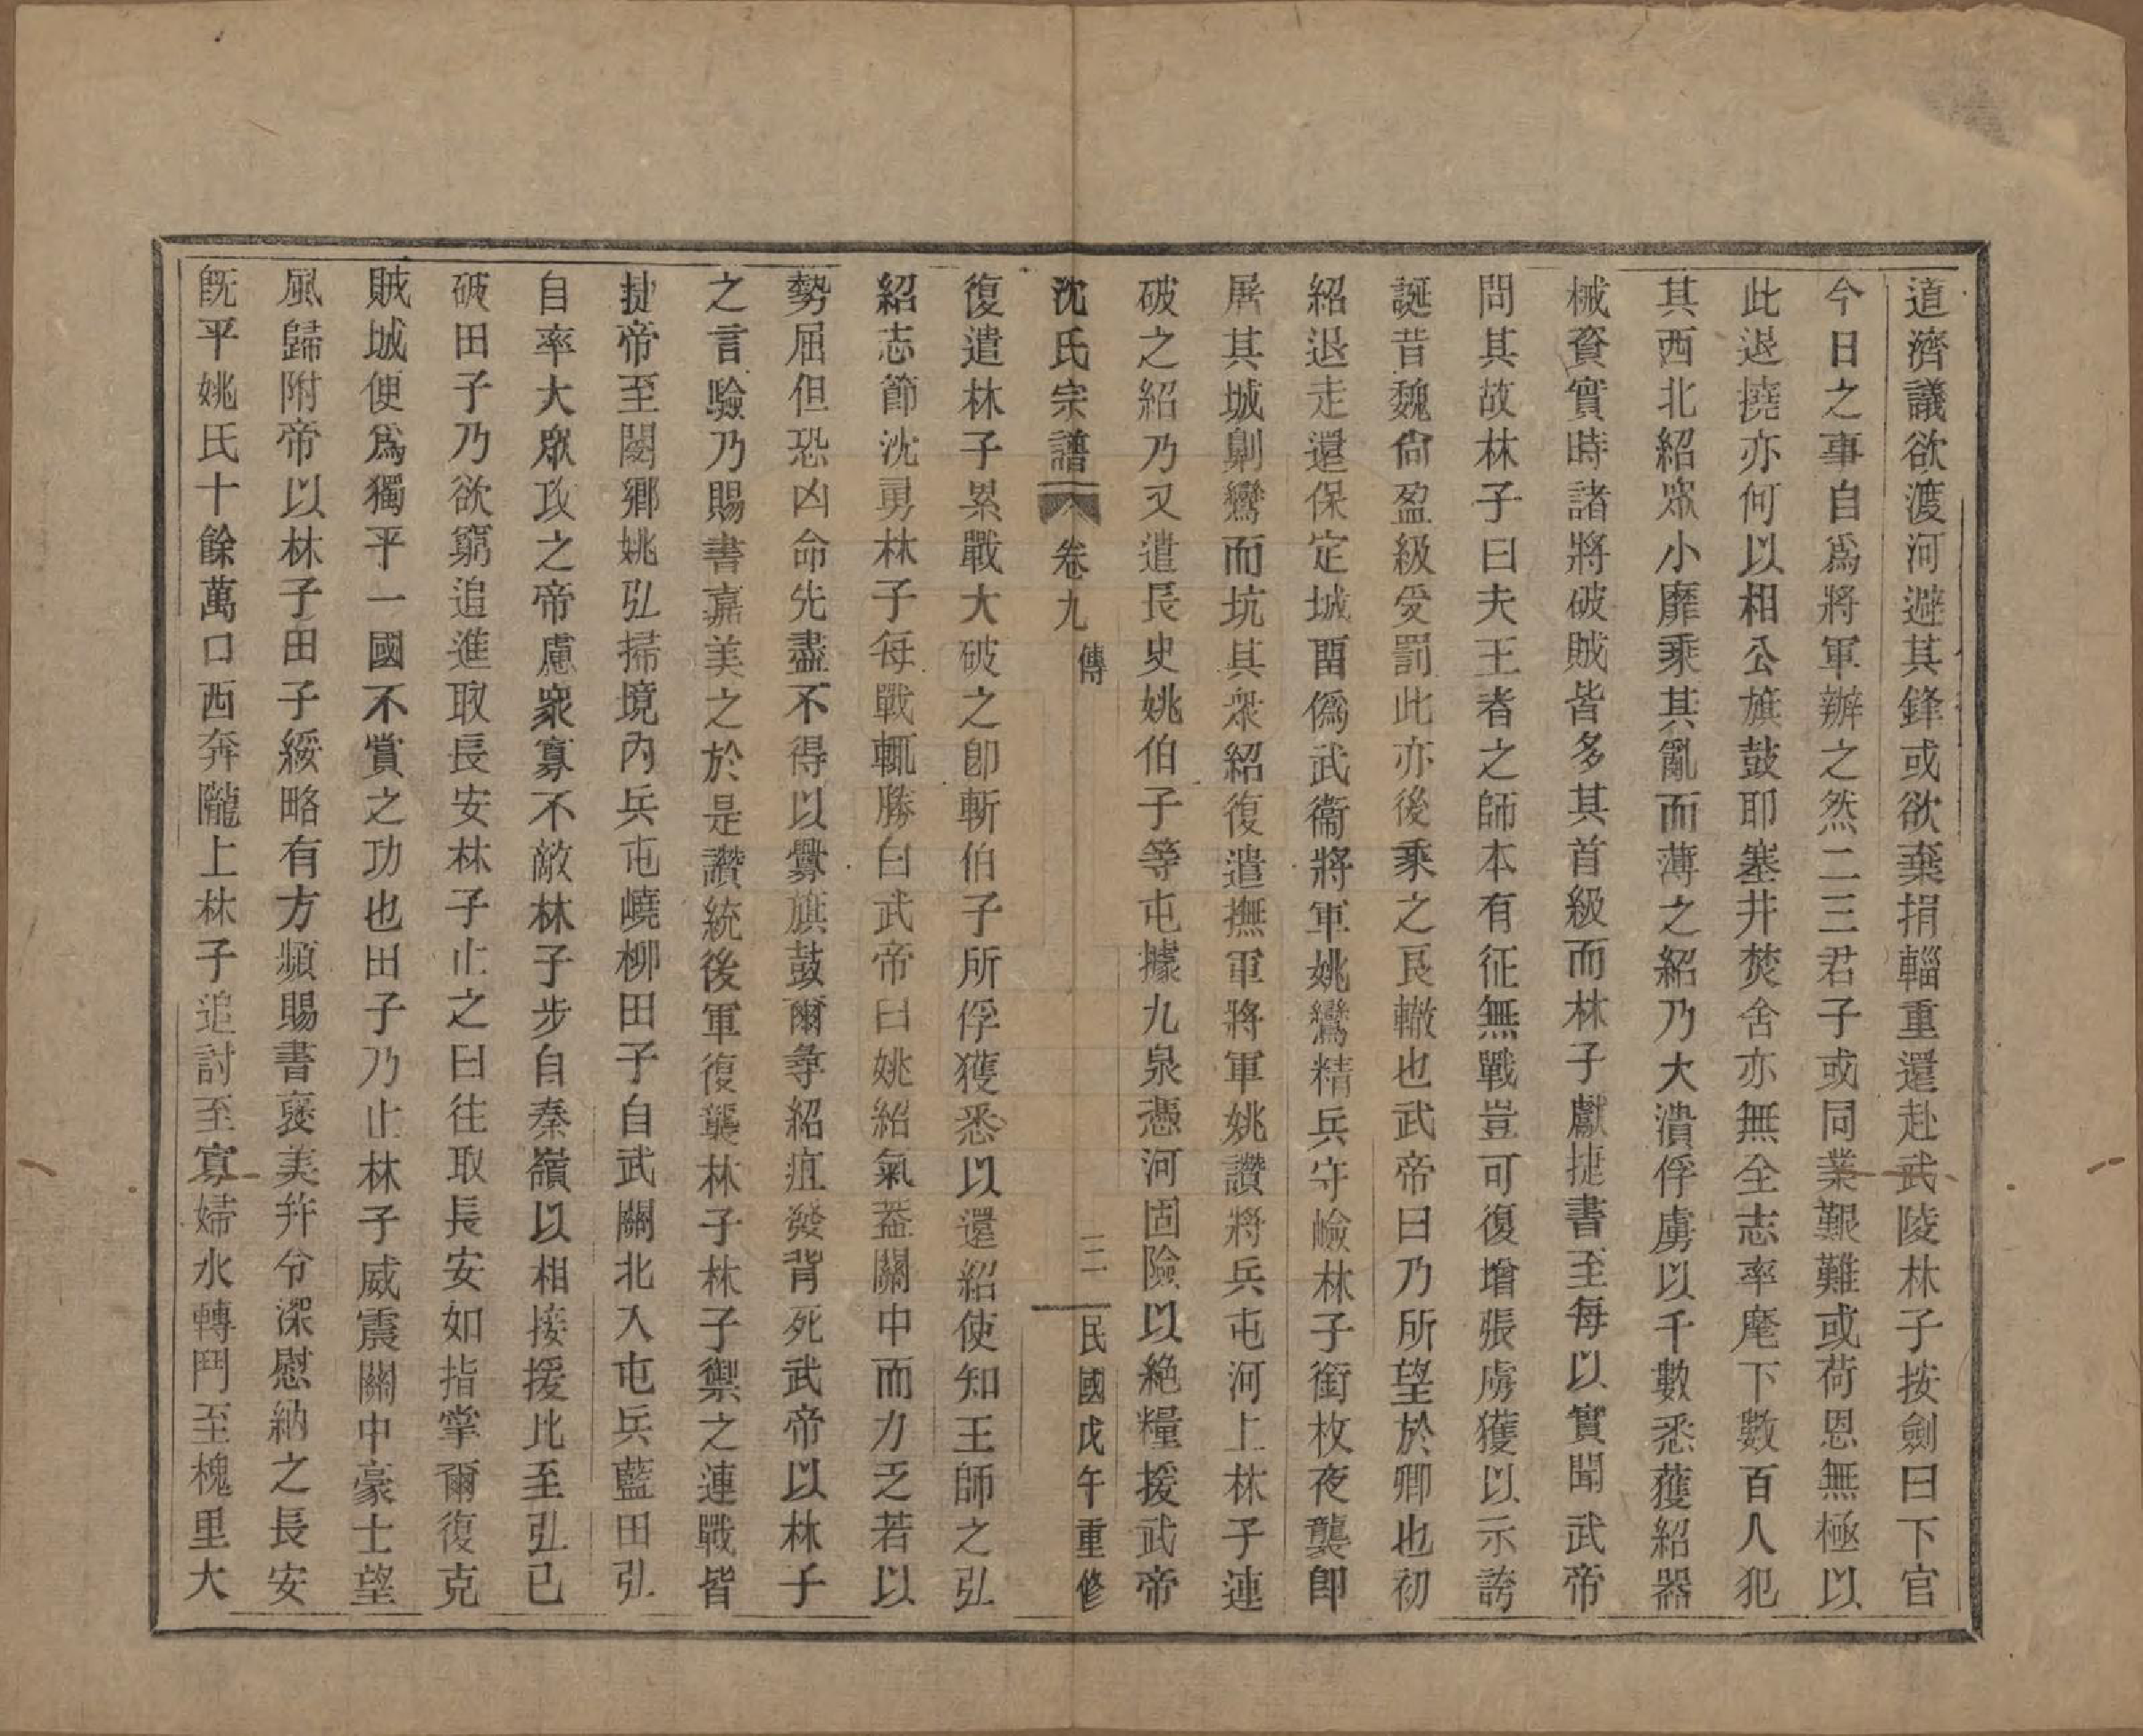 道濟議欲渡河避其鋒或欲棄捐輜重還赴武陵林子按劍曰下官
今日之事自爲將軍辦之然二三君子或同業艱難或荷恩無極以
此退撓亦何以相公旗鼓耶塞井焚舍亦無全志率麾下數百人犯
其西北紹眾小靡乘其亂而薄之紹乃大潰俘虜以千數悉獲紹器
械資實時諸將破賊皆多其首級而林子獻捷書至每以實聞武帝
問其故林子曰夫王者之師本有征無戰豈可復增張虜獲以示誇
誕昔魏尙盈級受罰此亦後乘之良轍也武帝曰乃所望於卿也初
紹退走還保定城畱僞武衞將軍姚鸞精兵守嶮林子銜枚夜襲卽
屠其城劓鸞而坑其衆紹復遣撫軍將軍姚讚將兵屯河上林子連
破之紹乃又遣長史姚伯子等屯據九泉憑河固險以絶糧援武帝
沈氏宗譜 卷九 傳 三 民國戊午重修
復遣林子累戰大破之卽斬伯子所俘獲悉以還紹使知王師之弘
紹志節沈勇林子每戰輒勝白武帝曰姚紹氣葢關中而力乏若以
勢屈但恐凶命先盡不得以釁旗鼓爾尋紹疽發背死武帝以林子
之言驗乃賜書嘉美之於是讚統後軍復襲林子林子禦之連戰皆
捷帝至閿鄉姚弘掃境內兵屯嶢柳田子自武關北入屯兵藍田弘
自率大眾攻之帝慮衆寡不敵林子步自秦嶺以相接援比至弘已
破田子乃欲窮追進取長安林子止之曰往取長安如指掌爾復克
賊城便爲獨平一國不賞之功也田子乃止林子威震關中豪士望
風歸附帝以林子田子綏略有方頻賜書褒美幷令深慰納之長安
旣平姚氏十餘萬口西奔隴上林子追討至寡婦水轉鬥至槐里大